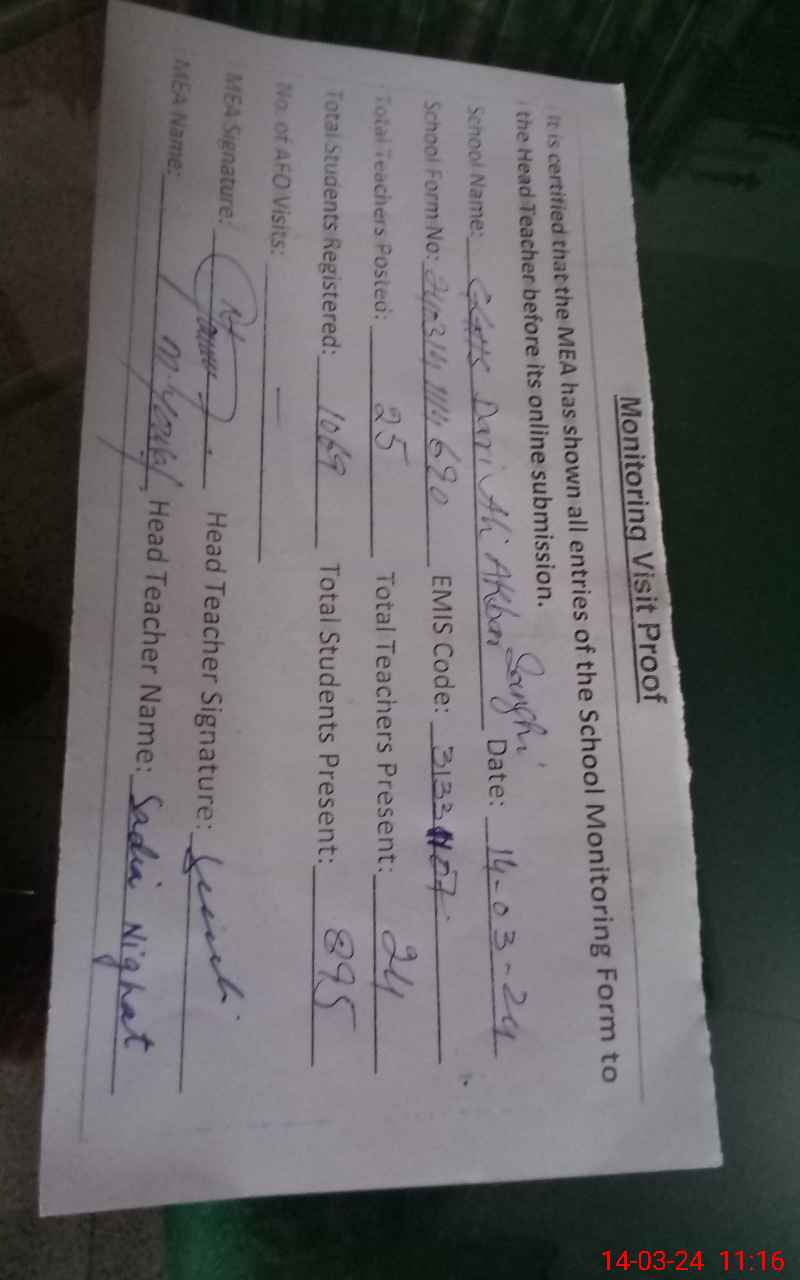 Monitoring Visit Proof
It is certified that the MEA has shown all entries of the School Monitoring Form to
the Head Teacher before its online submission.
School Name: Ali Akbar Sanghi Date: 14-03-24
School Form No: EMIS Code:
Total Teachers Posted: 25 Total Teachers Present: 24
Total Students Registered: 1069 Total Students Present: 895
No. of AEO Visits: —
MEA Signature: Head Teacher Signature:
MEA Name: Head Teacher Name: Sadia Nighat
14-03-24 11:16